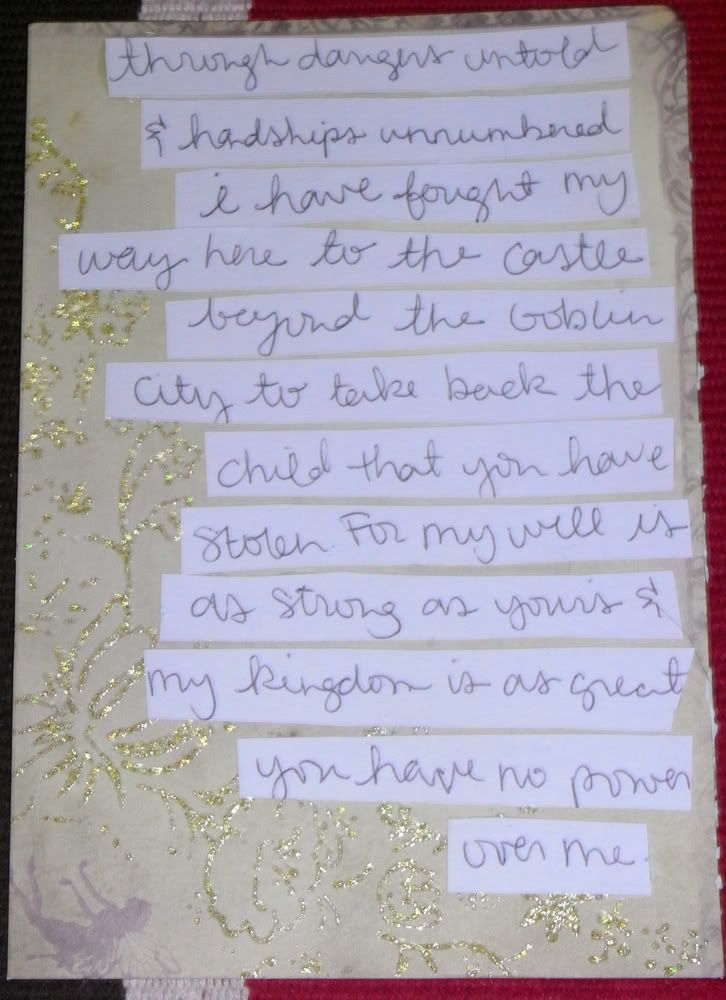 through dangers untold
& hardships unnumbered
i have fought my
way here to the castle
beyond the Goblin
City to take back the
child that you have
stolen. For my will is
as strong as yours &
my kingdom is as great
you have no power
over me.